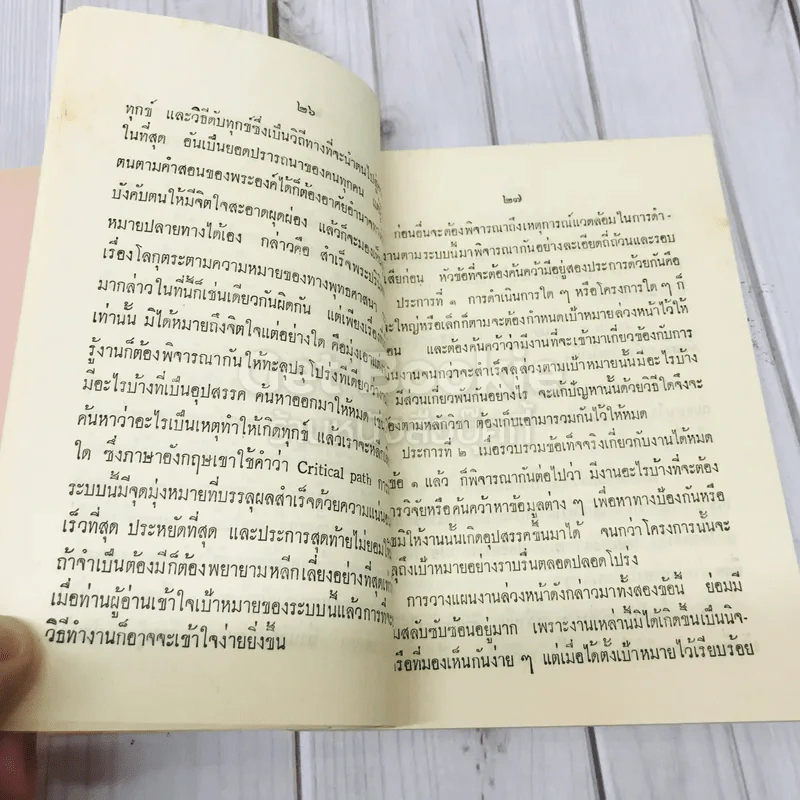 ๒๖
ทุกข์ และวิธีดับทุกข์ซึ่งเป็นวิถีทางที่จะนำตนไปสู่
ในที่สุด อันเป็นยอดปรารถนาของคนทุกคน
ตนตามคำสอนของพระองค์ได้ก็ต้องอาศัยอำนาจ
บังคับตนให้มีจิตใจสะอาดผุดผ่อง แล้วก็จะมอง
หมายปลายทางได้เอง กล่าวคือ สำเร็จพระ
เรื่องโลกุตระตามความหมายของทางพุทธศาสนา
มากล่าวในที่นี้ก็เช่นเดียวกันผิดกัน แต่เพียงเรื่อง
เท่านั้น มิได้หมายถึงจิตใจแต่อย่างใด คือมุ่งเอา
รู้งานก็ต้องพิจารณากันให้ทะลุปรุโปร่งทีเดียวว่า
มีอะไรบ้างที่เป็นอุปสรรค ค้นหาออกมาให้หมด เช่น
ค้นหาว่าอะไรเป็นเหตุทำให้เกิดทุกข์ แล้วเราจะหลีก
ใด ซึ่งภาษาอังกฤษเขาใช้คำว่า Critical path
ระบบนี้มีจุดมุ่งหมายที่บรรลุผลสำเร็จด้วยความแน่นอน
เร็วที่สุด ประหยัดที่สุด และประการสุดท้ายไม่ยอมให้
ถ้าจำเป็นต้องมีก็ต้องพยายามหลีกเลี่ยงอย่างที่สุด
เมื่อท่านผู้อ่านเข้าใจเป้าหมายของระบบนี้แล้วการที่จะ
วิธีทำงานก็อาจจะเข้าใจง่ายยิ่งขึ้น
๒๗
ก่อนอื่นจะต้องพิจารณาถึงเหตุการณ์แวดล้อมในการดำ-
งานตามระบบนี้มาพิจารณากันอย่างละเอียดถี่ถ้วนและรอบ
เสียก่อน หัวข้อที่จะต้องค้นคว้ามีอยู่สองประการด้วยกันคือ
ประการที่ ๑ การดำเนินการใด ๆ หรือโครงการใด ๆ ก็
จะใหญ่หรือเล็กก็ตามจะต้องกำหนดเป้าหมายล่วงหน้าไว้ให้
และต้องค้นคว้าว่ามีงานที่จะเข้ามาเกี่ยวข้องกับการ
งานจนกว่าจะสำเร็จลุล่วงตามเป้าหมายนั้นมีอะไรบ้าง
มีส่วนเกี่ยวพันกันอย่างไร จะแก้ปัญหานั้นด้วยวิธีใดจึงจะ
ต้องตามหลักวิชา ต้องเก็บเอามารวมกันไว้ให้หมด
ประการที่ ๒ เมื่อรวบรวมข้อเท็จจริงเกี่ยวกับงานได้หมด
ข้อ ๑ แล้ว ก็พิจารณากันต่อไปว่า มีงานอะไรบ้างที่จะต้อง
การวิจัยหรือค้นคว้าหาข้อมูลต่าง ๆ เพื่อหาทางป้องกันหรือ
มิให้งานนั้นเกิดอุปสรรคขึ้นมาได้ จนกว่าโครงการนั้นจะ
ลุถึงเป้าหมายอย่างราบรื่นตลอดปลอดโปร่ง
การวางแผนงานล่วงหน้าดังกล่าวมาทั้งสองข้อนี้ ย่อมมี
มสลับซับซ้อนอยู่มาก เพราะงานเหล่านี้มิได้เกิดขึ้นเป็นนิจ-
รือที่มองเห็นกันง่าย ๆ แต่เมื่อได้ตั้งเป้าหมายไว้เรียบร้อย